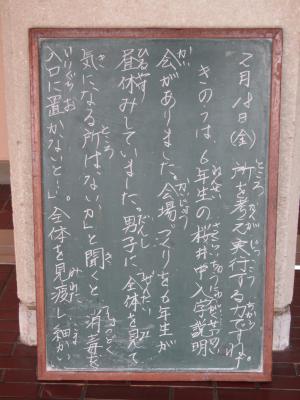 2月18日(金)
きのうは、6年生の桜井中入学説明
会がありました。会場づくりを6年生が
昼休みしていました。男子に「全体を見て
気になる所はないか」と聞くと「消毒を
入口に置かないと…」。全体を見渡し細かい
所を考え実行する力ですね